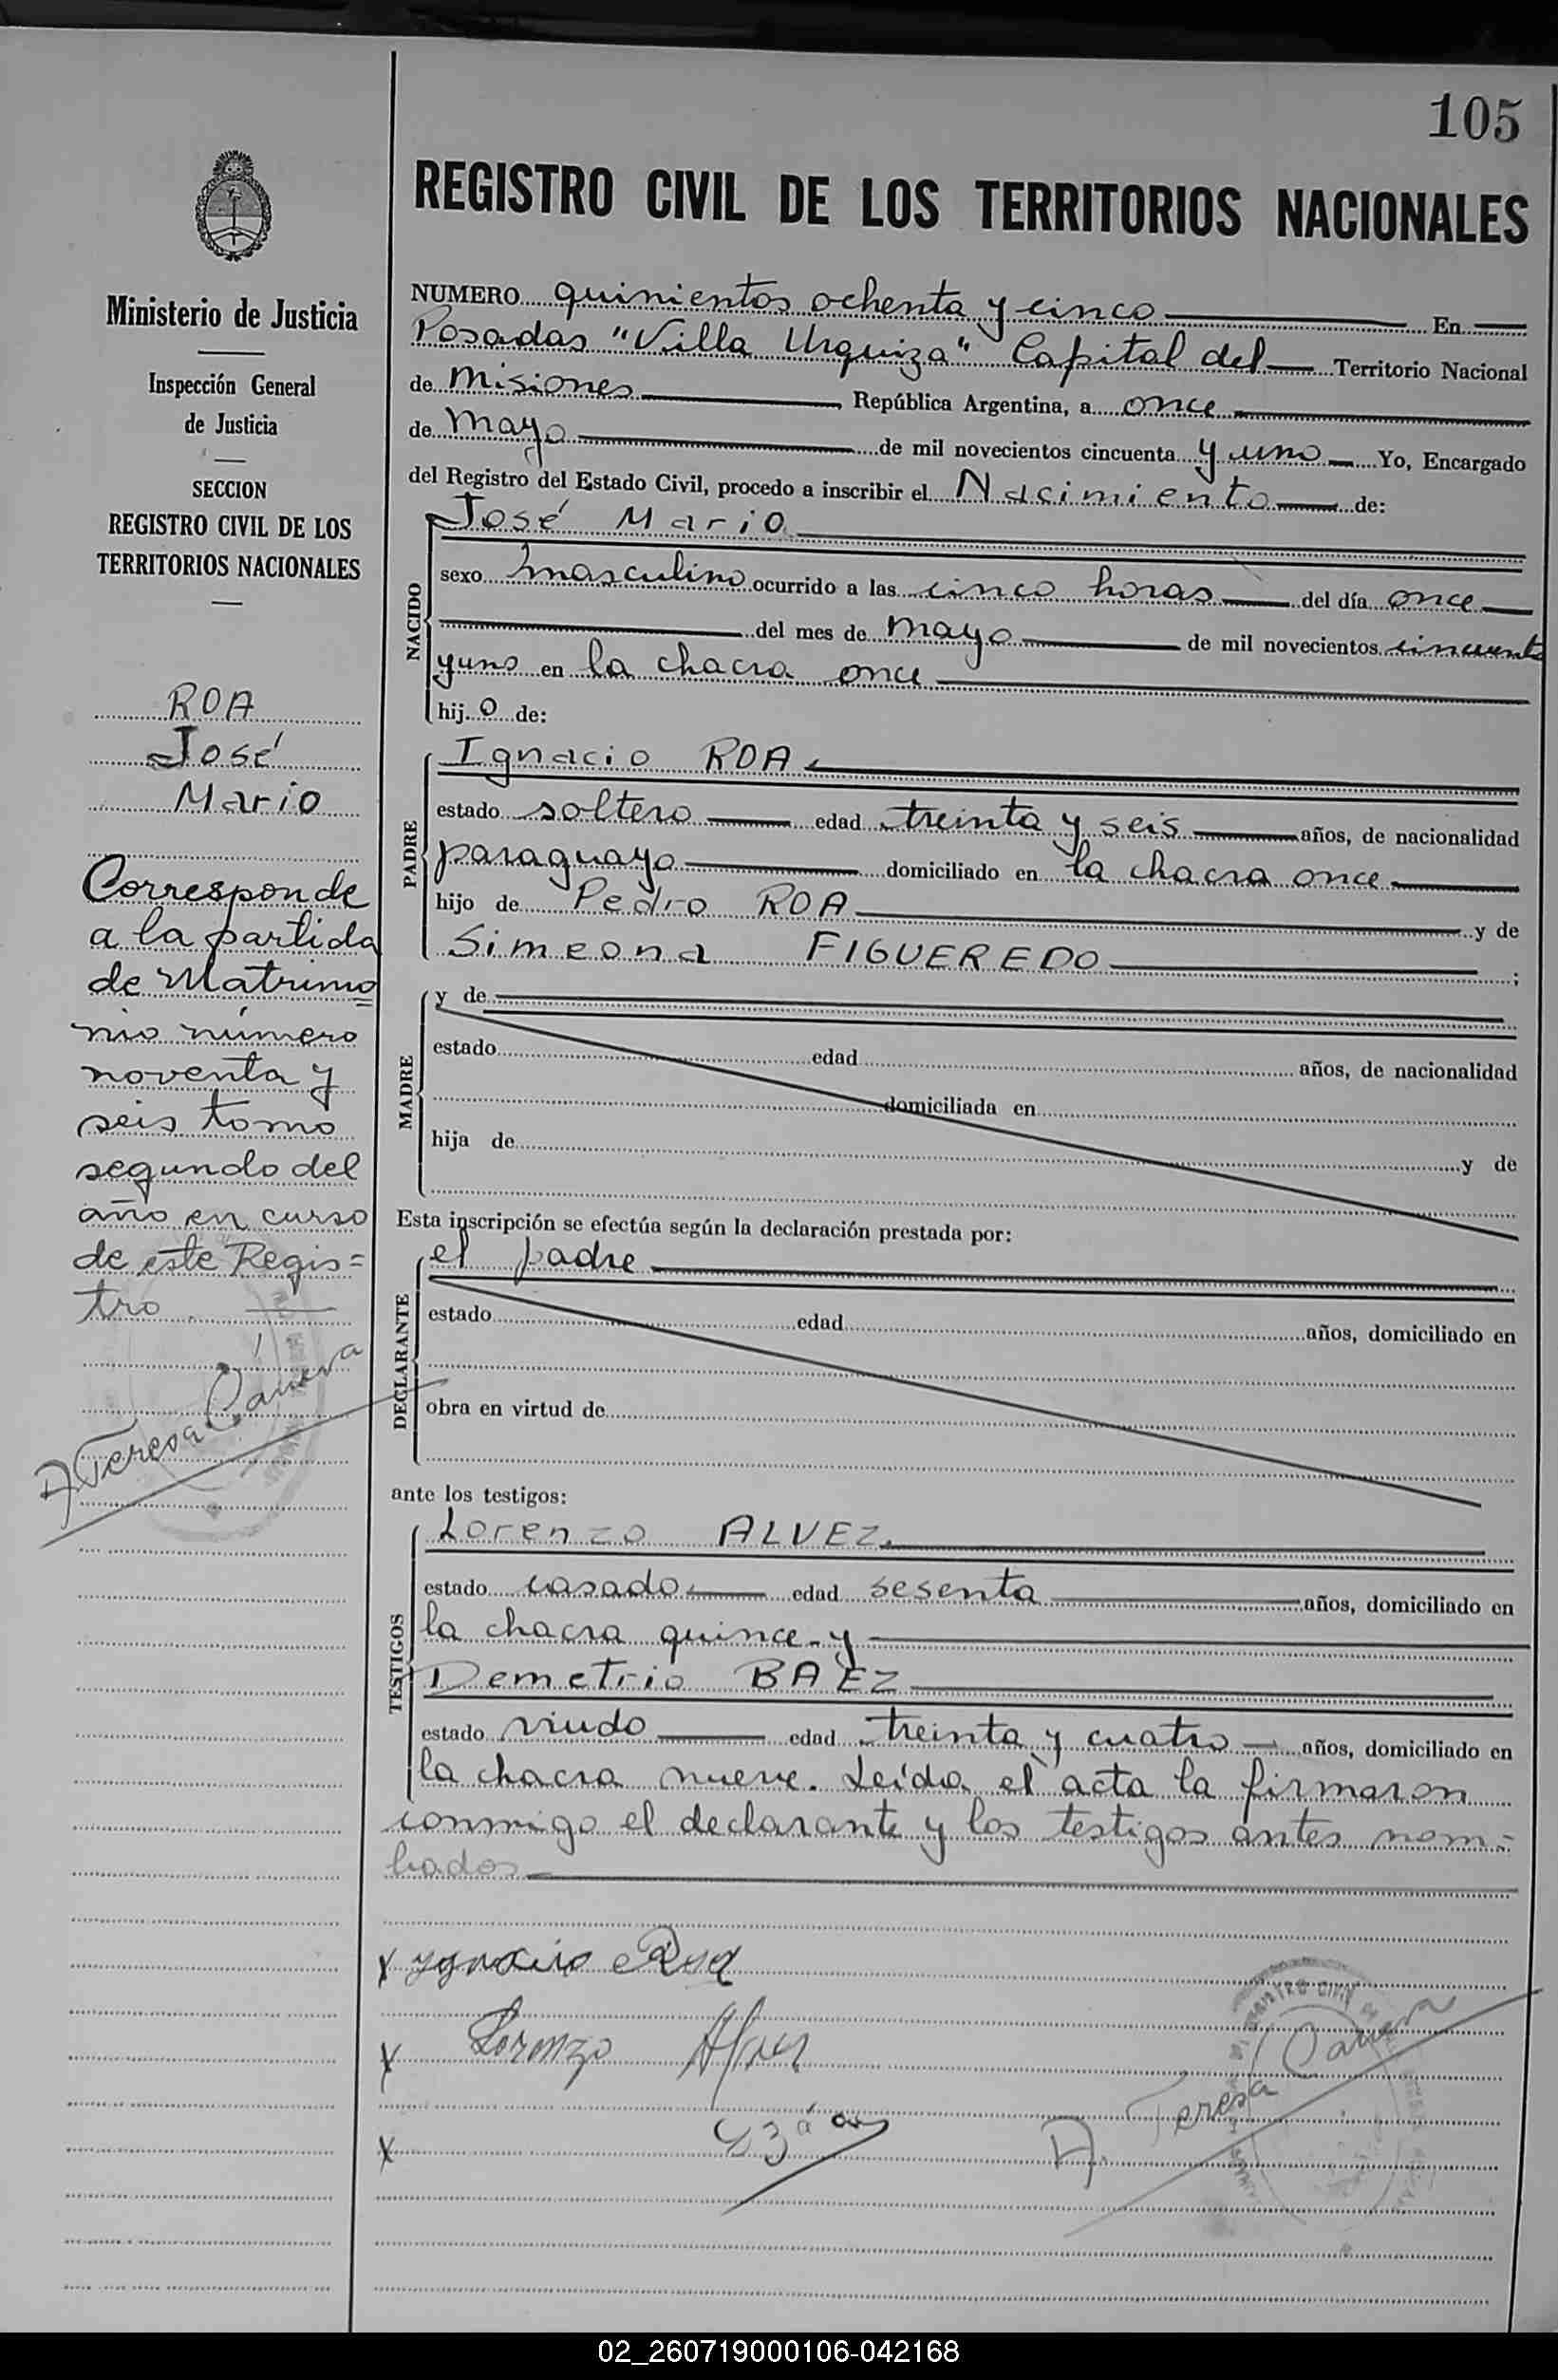 105
REGISTRO CIVIL DE LOS TERRITORIOS NACIONALES
Ministerio de Justicia
Inspección General
de Justicia
SECCION
REGISTRO CIVIL DE LOS
TERRITORIOS NACIONALES
ROA
José
Mario
Corresponde
a la partida
de Matrimo
nio número
noventa y
seis tomo
segundo del
año en curso
de este Regis=
tro.
A. Teresa Caneva
NUMERO quinientos ochenta y cinco En
Posadas "Villa Urquiza" Capital del Territorio Nacional
de Misiones República Argentina, a once
de Mayo de mil novecientos cincuenta y uno Yo, Encargado
del Registro del Estado Civil, procedo a inscribir el Nacimiento de:
NACIDO
José Mario
sexo masculino ocurrido a las cinco horas del día once
del mes de mayo de mil novecientos cincuenta
y uno en la chacra once
hijo de:
PADRE
Ignacio ROA
estado soltero edad treinta y seis años, de nacionalidad
paraguayo domiciliado en la chacra once
hijo de Pedro ROA y de
Simeona FIGUEREDO ;
MADRE
y de
estado edad años, de nacionalidad
domiciliada en
hija de y de
Esta inscripción se efectúa según la declaración prestada por:
DECLARANTE
el padre
estado edad años, domiciliado en
obra en virtud de
ante los testigos:
TESTIGOS
Lorenzo ALVEZ
estado casado edad sesenta años, domiciliado en
la chacra quince y
Demetrio BAEZ
estado viudo edad treinta y cuatro años, domiciliado en
la chacra nueve. Leída el acta la firmaron
conmigo el declarante y los testigos antes nom=
bados
x Ygnacio Roa
x Lorenzo Alvez
x
A. Teresa Caneva
02_260719000106-042168